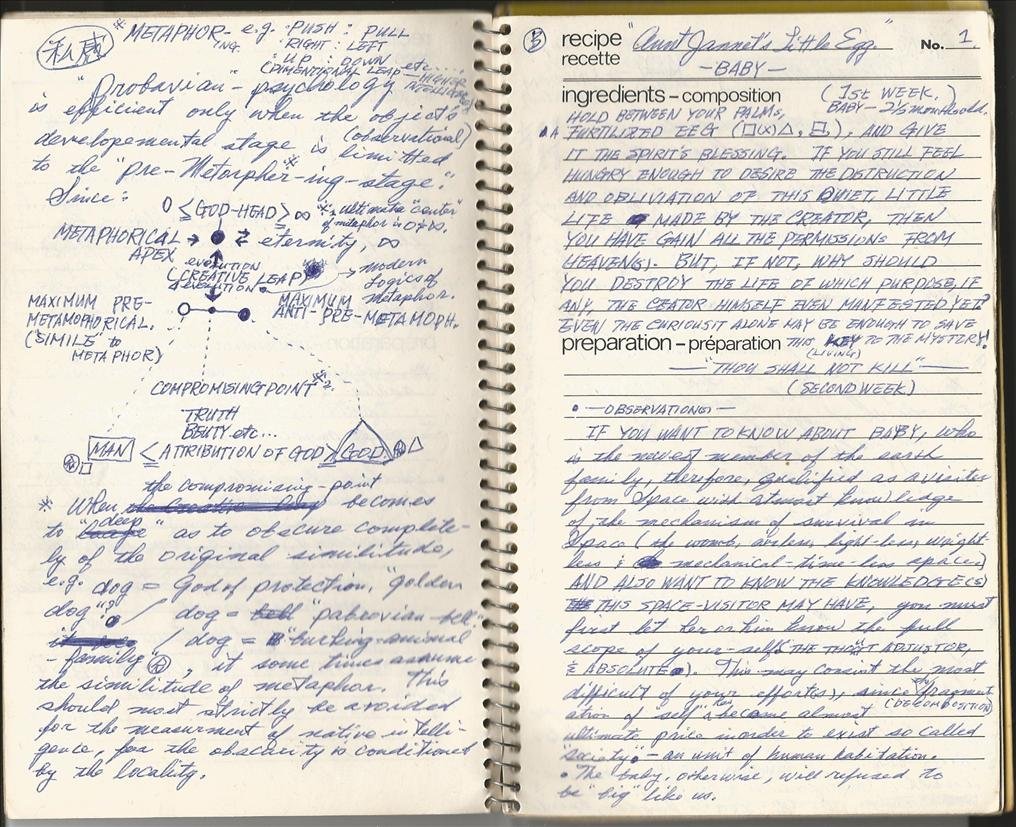 私感
* METAPHOR- e.g. PUSH : PULL
ING.
RIGHT : LEFT
UP : DOWN etc....
(DIMENTIONAL LEAP - HIGHER
"Probavian"- psychology
is efficient only when the object's
developemental stage is limitted (observational)
to the "pre-Metorpher-ing-stage."*
Since:
0 ≤ GOD-HEAD ≥ ∞ *2. ultimate "center"
of metaphor is 0 ∞.
METAPHORICAL → ● ⇄ eternity, ∞
APEX
evolution
(CREATIVE LEAP) → modern
logics of
metaphor.
MAXIMUM PRE-
METAMOPHORICAL.
(SIMILE to
METAPHOR)
MAXIMUM
ANTI-PRE-METAMOPH.
COMPROMISING POINT *2.
TRUTH
BEUTY etc...
MAN ≤ ATTRIBUTION OF GOD ≥ GOD
the compromising-point
* When becomes
to "deep" as to obscure complete-
ly of the original similitude,
e.g. dog = God of protection, "golden
dog"? / dog = "pabrovian-bell"
/ dog = "barking-animal
-family" , it some times assume
the similitude of metaphor. This
should most strictly be avoided
for the measurment of native intelli-
gence, for the obscurity is conditioned
by the locality.
5
recipe "Aunt Jannet's Little Egg" No. 1.
recette -BABY-
ingredients – composition (1st WEEK,)
BABY - 2½ months old.
HOLD BETWEEN YOUR PALMS,
A FURTILIZED EEG (□(x)△, □,), AND GIVE
IT THE SPIRIT'S BLESSING. IF YOU STILL FEEL
HUNGRY ENOUGH TO DESIRE THE DSTRUCTION
AND OBLIVIATION OF THIS QUIET, LITTLE
LIFE MADE BY THE CREATOR, THEN
YOU HAVE GAIN ALL THE PERMISSIONS FROM
HEAVEN(S). BUT, IF NOT, WHY SHOULD
YOU DESTROY THE LIFE OF WHICH PURPOSE, IF
ANY, THE CEATOR HIMSELF EVEN MANIFESTED YET?
EVEN THE CURIOUSIT ALONE MAY BE ENOUGH TO SAVE
preparation – préparation THIS KEY TO THE MYSTORY!
(LIVING)
"THOU SHALL NOT KILL"
(SECOND WEEK)
• — OBSERVATION(S) —
IF YOU WANT TO KNOW ABOUT BABY, who
is the newest member of the earth
family, therefore, qualified as a visiter
from Space with atmost knowledge
of the mechanism of survival in
Space (the womb, airless, light-less, weight-
less & mechanical-time-less space)
AND ALSO WANT TO KNOW THE KNOWLEDGE(S)
THIS SPACE-VISITOR MAY HAVE, you must
first let her or him know the full
scope of your-self (THE THOUT ADJUSTOR,
& ABSOLUTE). This may consist the most
difficult of your effort(s), since fragment
(DECOMPOSITION)
ation of "self" has become almost
ultimate price in order to exist so called
"society." - an unit of human habitation.
• The baby, otherwise, will refused to
be "big" like us.